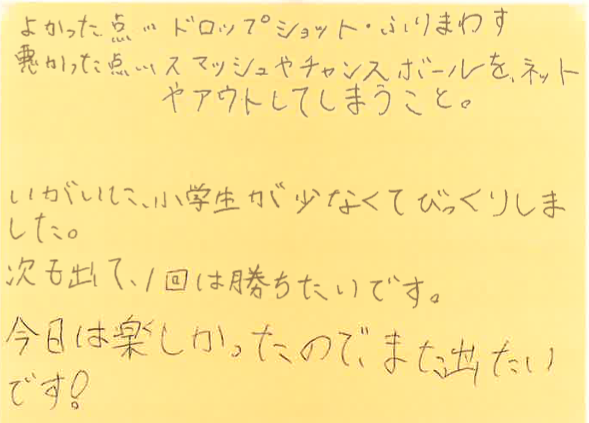 よかった点… ドロップショット・ふりまわす
悪かった点… スマッシュやチャンスボールを、ネット
やアウトしてしまうこと。
いがいに、小学生が少なくてびっくりしま
した。
次も出て、1回は勝ちたいです。
今日は楽しかったので、また出たい
です!